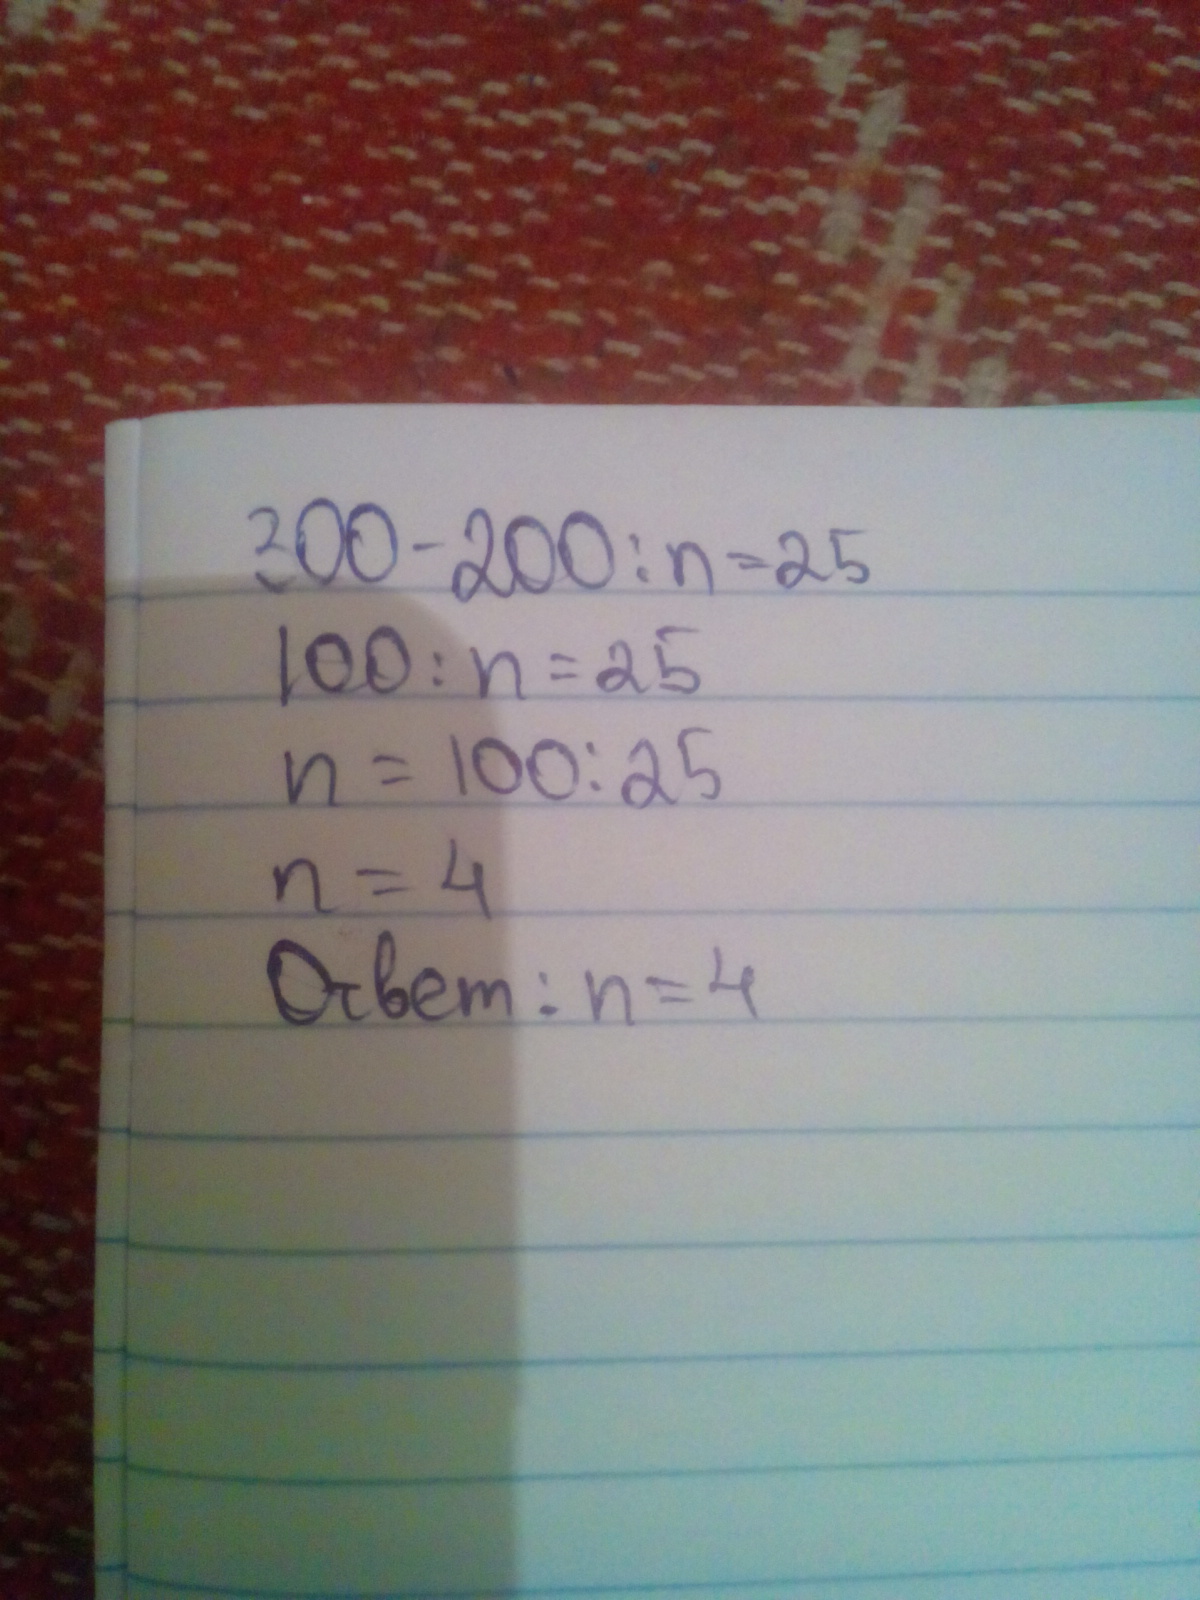 300-200:n=25
100:n=25
n=100:25
n=4
Ответ:n=4